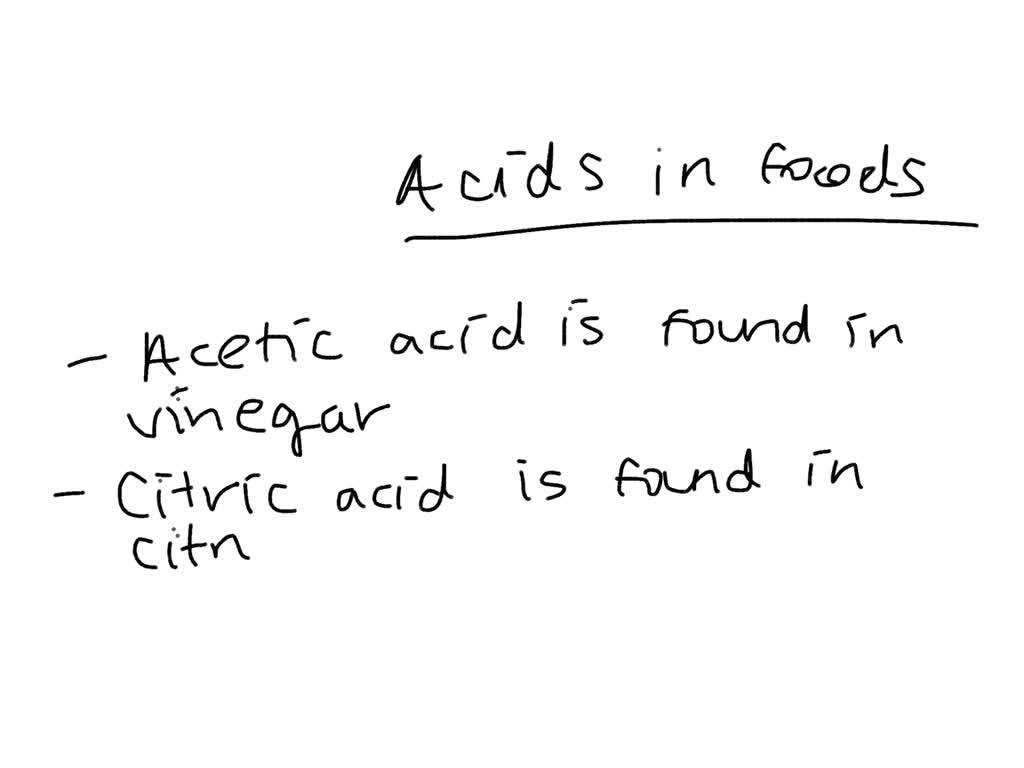 Acids in foods
- Acetic acid is found in
vinegar
- Citric acid is found in
citn